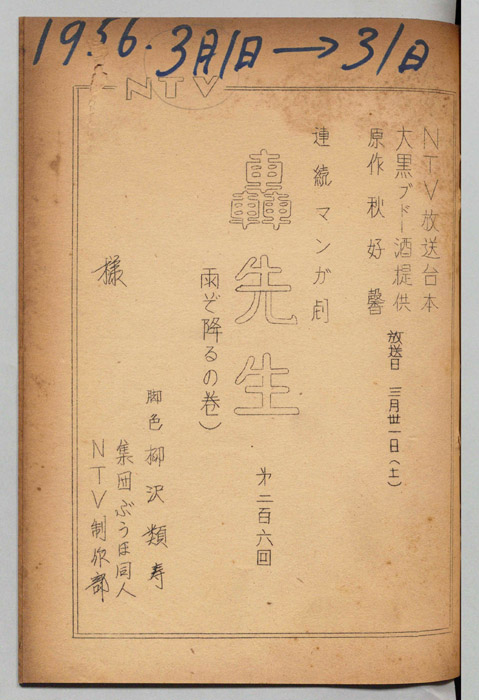 19.56. 3月1日→31日
NTV
NTV放送台本
大黒ブドー酒提供
放送日 三月卅一日(土)
原作 秋好馨
連続マンガ劇
轟先生
第二百六回
雨ぞ降るの巻)
脚色 柳沢類寿
集団ぶうほ同人
NTV制作部
様